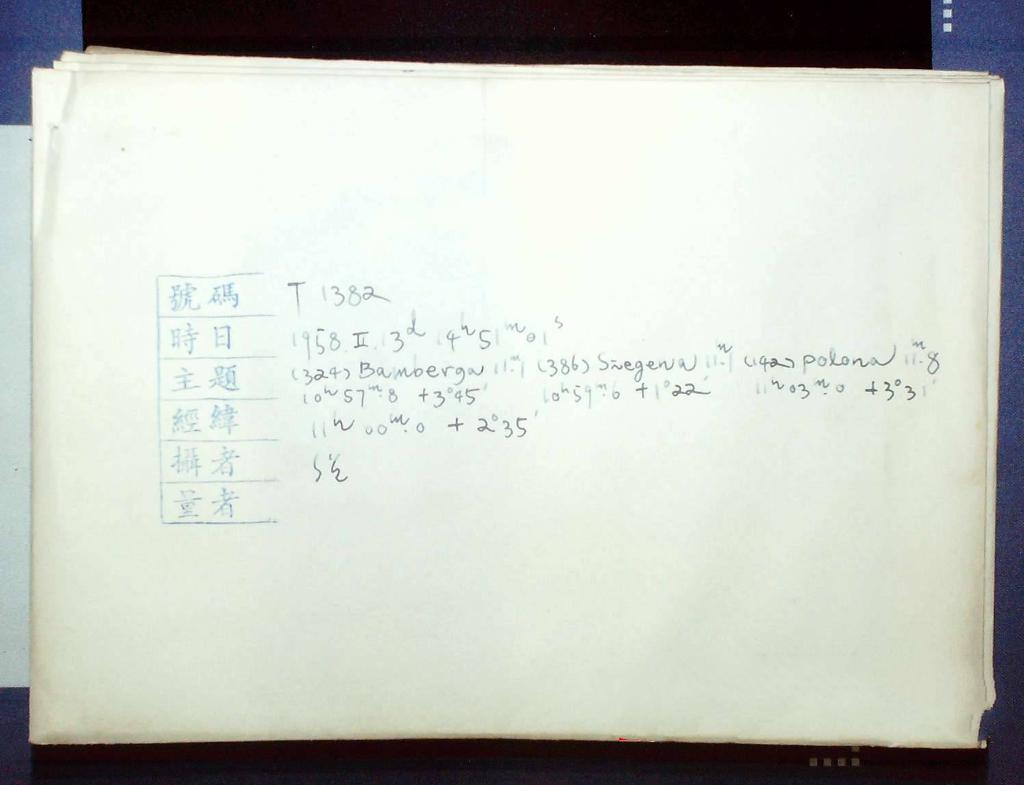 號碼 T 1382
時日 1958 II 13ᵈ 14ʰ 51ᵐ 01ˢ
主題 (324) Bamberga 11ᵐ.1 (386) Siegena 11ᵐ.1 (142) Polona 11ᵐ.8
10ʰ 57ᵐ.8 +3°45′ 10ʰ 59ᵐ.6 +1°22′ 11ʰ 03ᵐ.0 +3°31′
經緯 11ʰ 00ᵐ.0 + 2°35′
攝者
量者